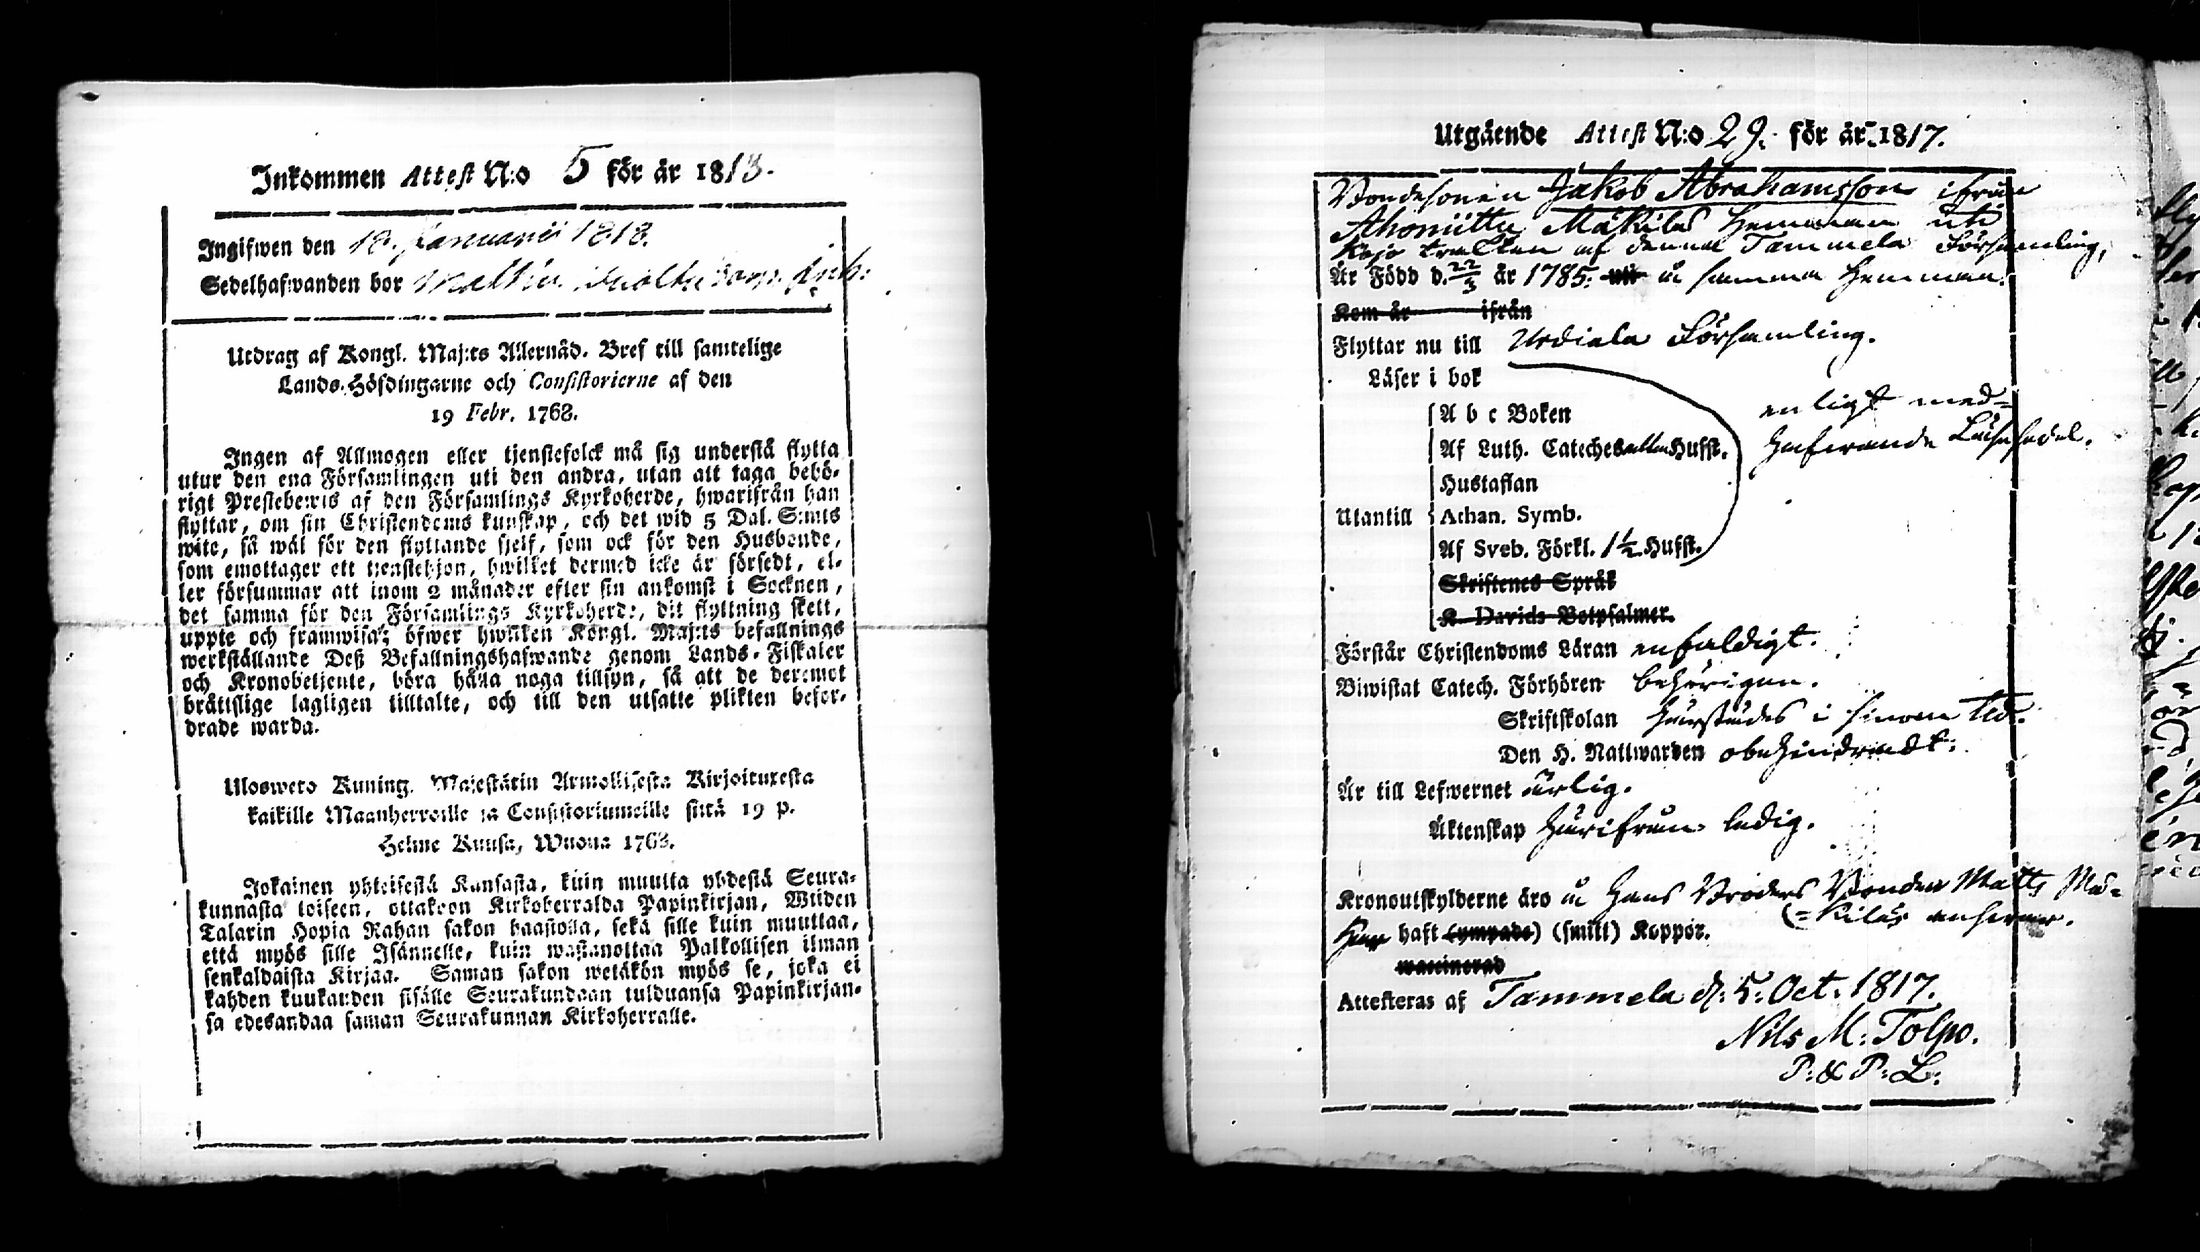 Inkommen Attest N:o 5 för år 1818.
Ingifwen den 10. Januarii 1818.
Sedelhafwanden bor
Utdrag af Kongl. Maj:ts Allernåd. Bref till samtelige
Lands-Höfdingarne och Consistorierne af den
19 Febr. 1768.
Ingen af Allmogen eller tjenstefolck må sig understå flytta
utur den ena Församlingen uti den andra, utan att taga behö-
rigt Prestebewis af den Församlings Kyrkoherde, hwarifrån han
flyttar, om sin Christendoms kunskap, och det wid 5 Dal. S:mts
wite, så wäl för den flyttande sjelf, som ock för den Husbonde,
som emottager ett tjenstehjon, hwilket dermed icke är försedt, el-
ler försummar att inom 2 månader efter sin ankomst i Socknen,
det samma för den Församlings Kyrkoherde, dit flyttning skett,
uppte och framwisa; öfwer hwilken Kongl. Maj:ts befallnings
werkställande Deß Befallningshafwande genom Lands-Fiskaler
och Kronobetjente, böra hålla noga tillsyn, så att de deremot
brättslige lagligen tilltalte, och till den utsatte plikten befor-
drade warda.
Ulosweto Kuning. Majestätin Armollisesta Kirjoituxesta
kaikille Maanherroille ja Consistoriumeille siitä 19 p.
Helme Kuusa, Wuona 1768.
Jokainen yhteisestä Kansasta, kuin muutta yhdestä Seura-
kunnasta toiseen, ottakoon Kirkoherralda Papinkirjan, Wiiden
Talarin Hopia Rahan sakon haastolla, sekä sille kuin muuttaa,
että myös sille Isännelle, kuin wastanottaa Palkollisen ilman
senkaldaista Kirjaa. Saman sakon wetäkön myös se, joka ei
kahden kuukauden sisälle Seurakundaan tulduansa Papinkirjan-
sa edesandaa saman Seurakunnan Kirkoherralle.
Utgående Attest N:o 29. för år 1817.
Bondesonen Jakob Abrahamsson ifrån
Ahoniitty Mäkilä Hemman uti
Kojo trackten af denna Tammela Församling,
Är Född d. 22/3 år 1785. uti å samma Hemman.
Kom år ifrån
Flyttar nu till Urdiala Församling.
Läser i bok
A b c Boken
enligt med-
Af Luth. Cateches alla Hufst.
hafwande Läsesedel.
Hustaflan
Utantill Athan. Symb.
Af Sveb. Förkl. 1½ Hufst.
Skriftenes Språk
K. Davids Botpsalmer.
Förstår Christendoms Läran enfaldigt.
Biwistat Catech. Förhören behörigen.
Skriftskolan härstädes i sinom tid.
Den H. Nattwarden obehindradt.
Är till Lefwernet ärlig.
Äktenskap härifrån ledig.
Kronoutskylderne äro å hans Broders Bonden Matts Mä-
kiläs ansvar.
Har haft (ympade) (smitt) Koppor.
waccinerad
Attesteras af Tammela d. 5. Oct. 1817.
Nils M. Tolpo.
P. & P. L.